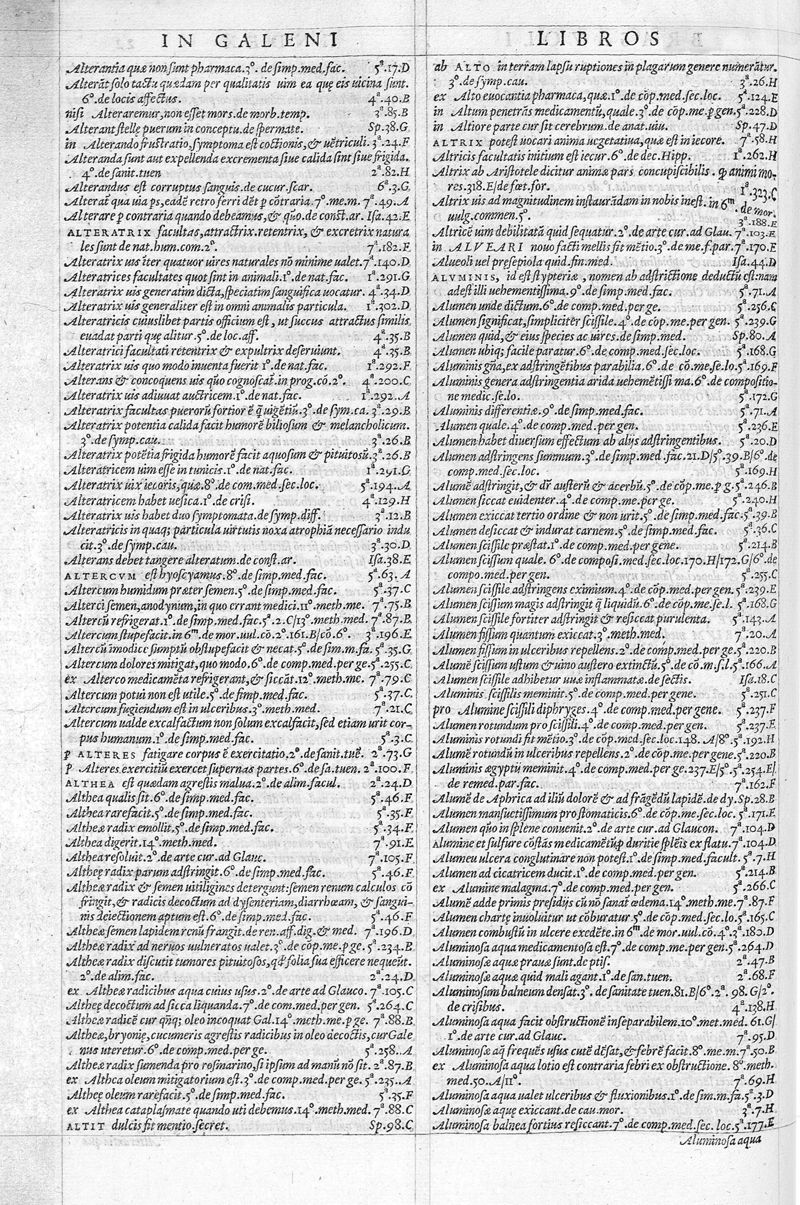 IN GALENI LIBROS
Alterantia quæ non sunt pharmaca.3º. de simp.med.fac. 5ª.17.D
Alterāt solo tactu quædam per qualitatis uim ea quę eis uicina sunt.
6º.de locis affectus. 4ª.40.B
nisi Alteraremur, non esset mors.de morb.temp. 3ª.85.B
Alterant stellę puerum in conceptu.de spermate. Sp.38.G
in Alterando frustratio, symptoma est coctionis, & uētriculi. 3ª.24.F
Alteranda sunt aut expellenda excrementa siue calida sint siue frigida.
4º.de sanit.tuen 2ª.82.H
Alterandus est corruptus sanguis.de cucur.scar. 6ª.3.G
Alterat q̄a uia ps, eadē retro ferri dēt p cōtraria.7º.me.m. 7ª.49.A
Alterare p contraria quando debeamus, & quō.de const.ar. Isa.42.E
ALTERATRIX facultas, attractrix.retentrix, & excretrix natura
les sunt de nat.hum.com.2º. 7ª.182.F
Alteratrix uis iter quatuor uires naturales nō minime ualet. 7ª.140.D
Alteratrices facultates quot sint in animali.1º.de nat.fac. 1ª.291.G
Alteratrix uis generatim dicta, speciatim sanguifica uocatur. 4ª.34.D
Alteratrix uis generaliter est in omni animalis particula. 1ª.302.D
Alteratricis cuiuslibet partis officium est, ut succus attractus similis
euadat parti quę alitur.5º.de loc.aff. 4ª.35.B
Alteratrici facultati retentrix & expultrix deseruiunt. 4ª.35.B
Alteratrix uis quo modo inuenta fuerit 1º.de nat.fac. 1ª.292.F
Alterans & concoquens uis quō cognoscat̄.in prog.cō.2º. 4ª.200.C
Alteratrix uis adiuuat auctricem.1º.de nat.fac. 1ª.292.A
Alteratrix facultas puerorū fortior ē q̄ uigētiū.3º.de sym.ca. 3ª.29.B
Alteratrix potentia calida facit humorē biliosum & melancholicum.
3º.de symp.cau. 3ª.26.B
Alteratrix potētia frigida humorē facit aquosum & pituitosū. 3ª.26.B
Alteratricem uim esse in tunicis.1º.de nat.fac. 1ª.291.G
Alteratrix uix iecoris, quæ.8º.de com.med.sec.loc. 5ª.194.A
Alteratricem habet uesica.1º.de crisi. 4ª.129.H
Alteratrix uis habet duo symptomata.de symp.diff. 3ª.12.B
Alteratricis in quaq; particula uirtutis noxa atrophiā necessario indu
cit.3º.de symp.cau. 3ª.30.D
Alterans debet tangere alteratum.de const.ar. Isa.38.E
ALTERCVM est hyoscyamus.8º.de simp.med.fac. 5ª.63.A
Altercum humidum præter semen.5º.de simp.med.fac. 5ª.37.C
Alterci semen, anodynium, in quo errant medici.11º.meth.me. 7ª.75.B
Altercū refrigerat.1º.de simp.med.fac.5ª.2.C/13º.meth.med. 7ª.87.B
Altercum stupefacit.in 6m.de mor.uul.cō.2º.161.B/cō.6º. 3ª.196.E
Altercū īmodice sumptū obstupefacit & necat.5º.de sim.m.fa. 5ª.35.G
Altercum dolores mitigat, quo modo.6º.de comp.med.per ge. 5ª.255.C
ex Alterco medicamēta refrigerant, & siccāt.12º.meth.mc. 7ª.79.C
Altercum potui non est utile.5º.de simp.med.fac. 5ª.37.C
Altercum fugiendum est in ulceribus.3º.meth.med. 7ª.21.C
Altercum ualde excalfactum non solum excalfacit, sed etiam urit cor-
pus humanum.1º.de simp.med.fac. 5ª.3.C
p ALTERES fatigare corpus ē exercitatio.2º.de sanit.tuē. 2ª.73.G
p Alteres exercitiū exercet supernas partes.6º.de sa.tuen. 2ª.100.F
ALTHEA est quædam agrestis malua.2º.de alim.facul. 2ª.24.D
Althea qualis sit.6º.de simp.med.fac. 5ª.46.F
Althea rarefacit.5º.de simp.med.fac. 5ª.35.F
Altheæ radix emollit.5º.de simp.med.fac. 5ª.34.F
Althea digerit.14º.meth.med. 7ª.91.E
Althea resoluit.2º.de arte cur.ad Glauc. 7ª.105.F
Altheę radix parum adstringit.6º.de simp.med.fac. 5ª.46.F
Altheæ radix & semen uitiligines detergunt: semen renum calculos cō
fringit, & radicis decoctum ad dysenteriam, diarrhœam, & sangui-
nis deiectionem aptum est.6º.de simp.med.fac. 5ª.46.F
Altheæ semen lapidem renū frangit.de ren.aff.dig.& med. 7ª.196.D
Altheæ radix ad neruos uulneratos ualet.3º.de cōp.me.p ge. 5ª.234.B
Altheæ radix discutit tumores pituitosos, qđ folia sua efficere nequeūt.
2º.de alim.fac. 2ª.24.D.
ex Altheæ radicibus aqua cuius usus.2º.de arte ad Glauco. 7ª.105.C
Altheę decoctum ad sicca liquanda.7º.de com.med.per gen. 5ª.264.C
Altheæ radicē cur q̄nq; oleo incoquat Gal.14º.meth.me.p ge. 7ª.88.B.
Altheæ, bryonię, cucumeris agrestis radicibus in oleo decoctis, cur Gale
nus uteretur.6º.de comp.med.per ge. 5ª.258.A
Altheæ radix sumenda pro resinarino, si ipsum ad manū nō sit. 2ª.87.B
ex Althea oleum mitigatorium est.3º.de comp.med.per ge. 5ª.235.A
Altheę oleum rarefacit.5º.de simp.med.fac. 5ª.35.F
ex Althea cataplasmate quando uti debemus.14º.meth.med. 7ª.88.C
ALTIT dulcis fit mentio.secret. Sp.98.C
ab ALTO in terram lapsu ruptiones in plagarum genere numerātur.
3º.de symp.cau. 3ª.26.H
ex Alto euocantia pharmaca, quæ.1º.de cōp.med.sec.loc. 5ª.124.E
in Altum penetrās medicamentū, quale.3º.de cōp.me.p gen. 5ª.228.D
in Altiore parte cur sit cerebrum.de anat.uiu. Sp.47.D
ALTRIX potest uocari anima uegetatiua, quæ est in iecore. 7ª.58.H
Altricis facultatis initium est iecur.6º.de dec.Hipp. 1ª.262.H
Altrix ab Aristotele dicitur animæ pars concupiscibilis. q̄ animi mo-
res.318.E/de fœt.for. 1ª.323.C
Altrix uis ad magnitudinem instaurādam in nobis inest.in 6m.de mor.
uulg.commen.5º. 3ª.188.E
Altricē uim debilitatā quid sequatur.2º.de arte cur.ad Glau. 7ª.103.E
in ALVEARI nouo facti mellis fit mētio.3º.de me.f.par. 7ª.170.E
Alueoli uel præsepiola quid.fin.med. Isa.44.D
ALVMINIS, id est stypteriæ, nomen ab adstrictione deductū est: nam
adest illi uehementissima.9º.de simp.med.fac. 5ª.71.A
Alumen unde dictum.6º.de comp.med.per ge. 5ª.256.C
Alumen significat, simpliciter scissile.4º.de cōp.me.per gen. 5ª.239.G
Alumen quid, & eius species ac uires.de simp.med. Sp.80.A
Alumen ubiq; facile paratur.6º.de comp.med.sec.loc. 5ª.168.G
Aluminis gña, ex adstringētibus parabilia.6º.de cō.me.se.lo. 5ª.169.F
Aluminis genera adstringentia arida uehemētissima.6º.de compositio-
ne medic.se.lo. 5ª.172.G
Aluminis differentiæ.9º.de simp.med.fac. 5ª.71.A
Alumen quale.4º.de comp.med.per gen. 5ª.236.E
Alumen habet diuersum effectum ab alijs adstringentibus. 5ª.20.D
Alumen adstringens summum.3º.de simp.med.fac.21.D/5º.39.B/6º.de
comp.med.sec.loc. 5ª.169.H
Alumē adstringit, & dr̄ austerū & acerbū.5º.de cōp.me.p g. 5ª.246.B
Alumen siccat euidenter.4º.de comp.me.per ge. 5ª.240.H
Alumen exiccat tertio ordine & non urit.5º.de simp.med.fac. 5ª.39.B
Alumen desiccat & indurat carnem.5º.de simp.med.fac. 5ª.36.C
Alumen scissile præstat.1º.de comp.med.per gene. 5ª.214.B
Alumen scissile quale.6º.de composi.med.sec.loc.170.H/172.G/6º.de
compo.med.per gen. 5ª.255.C
Alumen scissile adstringens eximium.4º.de comp.med.per gen. 5ª.239.E
Alumen scissum magis adstringit q̄ liquidū.6º.de cōp.me.se.l. 5ª.168.G
Alumen scissile fortiter adstringit & resiccat purulenta. 5ª.143.A
Alumen fissum quantum exiccat.3º.meth.med. 7ª.20.A
Alumen fissum in ulceribus repellens.2º.de comp.med.per ge. 5ª.220.B
Alumē scissile ustum & uino austero extinctū.5º.de cō.m.s.l. 5ª.166.A
Alumen scissile adhibetur uuæ inflammatæ.de sectis. Isa.18.C
Aluminis scissilis meminit.5º.de comp.med.per gene. 5ª.251.C
pro Alumine scissili diphryges.4º.de comp.med.per gene. 5ª.237.F
Alumen rotundum pro scissili.4º.de comp.med.per gen. 5ª.237.E
Aluminis rotundi fit mētio.3º.de cōp.med.sec.loc.148.A/8º.5ª.192.H
Alumē rotundū in ulceribus repellens.2º.de cōp.me.per gene. 5ª.220.B
Aluminis ægyptij meminit.4º.de comp.med.per ge.237.E/5º.5ª.254.E/
de remed.par.fac. 7ª.162.F
Alumē de Aphrica ad iliū dolorē & ad frāgēdū lapidē.de dy. Sp.28.B
Alumen mansuetissimum pro stomaticis.6º.de cōp.me.sec.loc. 5ª.171.E
Alumen quō in splene conuenit.2º.de arte cur.ad Glaucon. 7ª.104.D
Alumine et sulfure cōstās medicamētū, p duritie splēis ex flatu. 7ª.104.D
Alumen ulcera conglutinare non potest.1º.de simp.med.facult. 5ª.7.H
Alumen ad cicatricem ducit.1º.de comp.med.per gen. 5ª.214.B
ex Alumine malagma.7º.de comp.med.per gen. 5ª.266.C
Alumē adde primis presidijs cū nō sanat œdema.14º.meth.me. 7ª.87.F
Alumen chartę inuoluitur ut cōburatur.5º.de cōp.med.sec.lo. 5ª.165.C
Alumen combustū in ulcere exedēte.in 6m.de mor.uul.cō.4º. 3ª.180.D
Aluminosa aqua medicamentosa est.7º.de comp.med.per gen. 5ª.264.D
Aluminosæ aquæ prauæ sunt.de ptis. 2ª.47.B
Aluminosæ aquæ quid mali agant.1º.de san.tuen. 2ª.68.F
Aluminosum balneum densat.3º.de sanitate tuen.81.B/6º.2ª.98.G/2º.
de crisibus. 4ª.138.H
Aluminosa aqua facit obstructionē inseparabilem.10º.met.med.61.G/
1º.de arte cur.ad Glauc. 7ª.95.D
Aluminosæ aq̄ frequēs usus cutē dēsat, & febrē facit.8º.me.m. 7ª.50.B
ex Aluminosa aqua lotio est contraria febri ex obstructione.8º.meth-
med.50.A/11º. 7ª.69.H
Aluminosa aqua ualet ulceribus & fluxionibus.1º.de sim.m.fa. 5ª.3.D
Aluminosæ aquę exiccant.de cau.mor. 3ª.7.H
Aluminosa balnea fortius resiccant.7º.de comp.med.sec.loc. 5ª.177.E
Aluminosa aqua